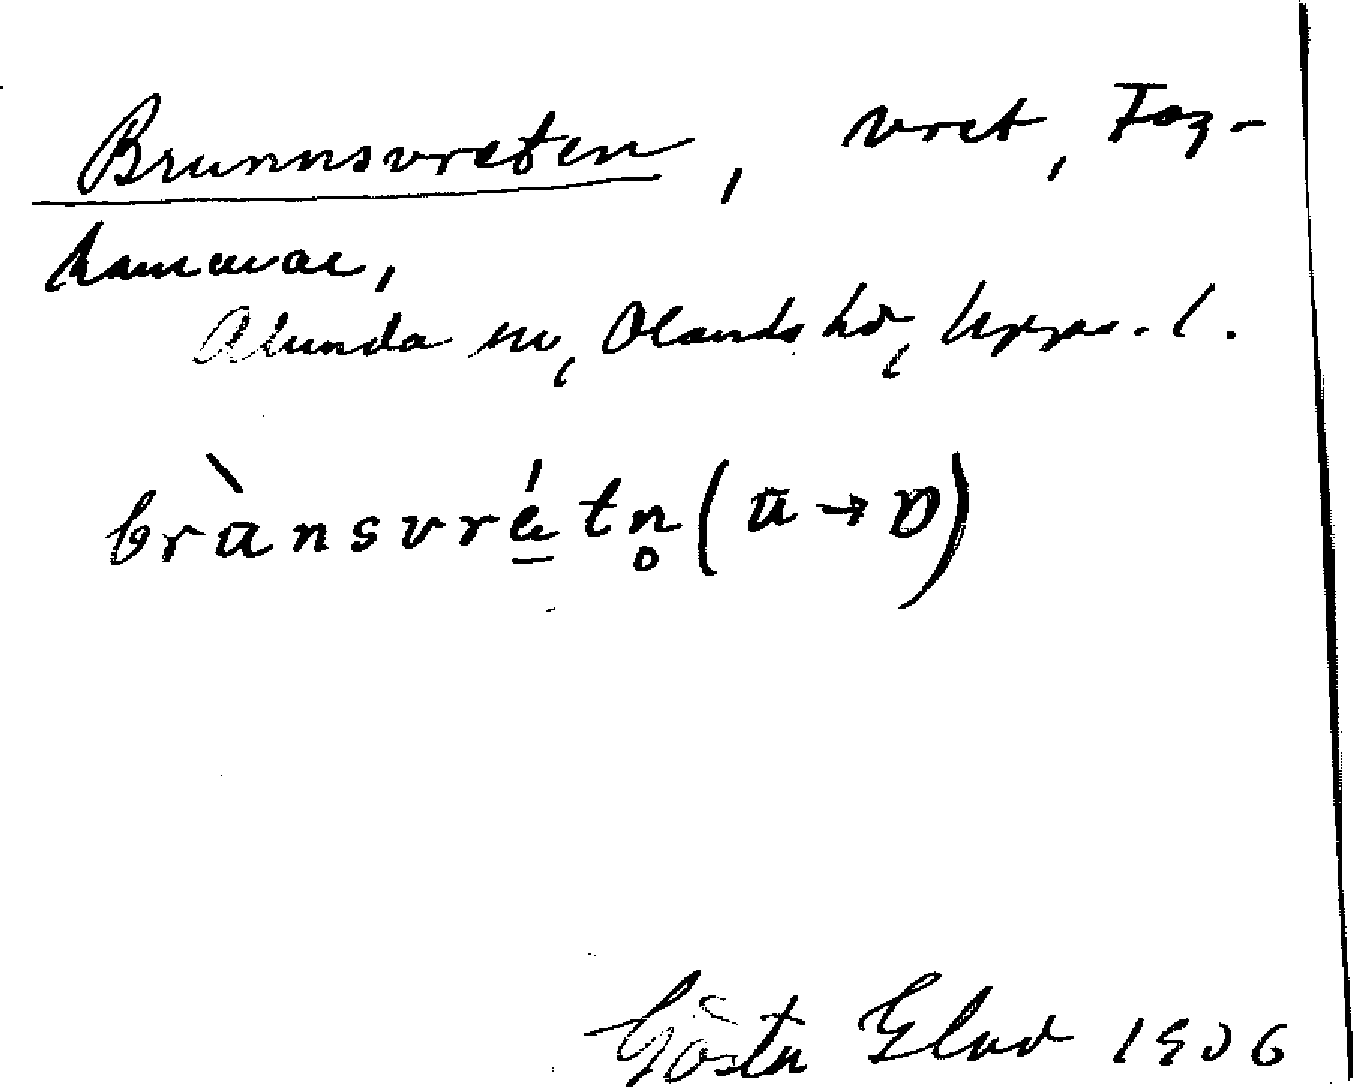 Brunnsvreten, vret, Fog-
hammar,
Alunda sn, Olands hd, Upps. l.
brànsvrétn̥ (a → ʋ)
Gösta Elvd 1906